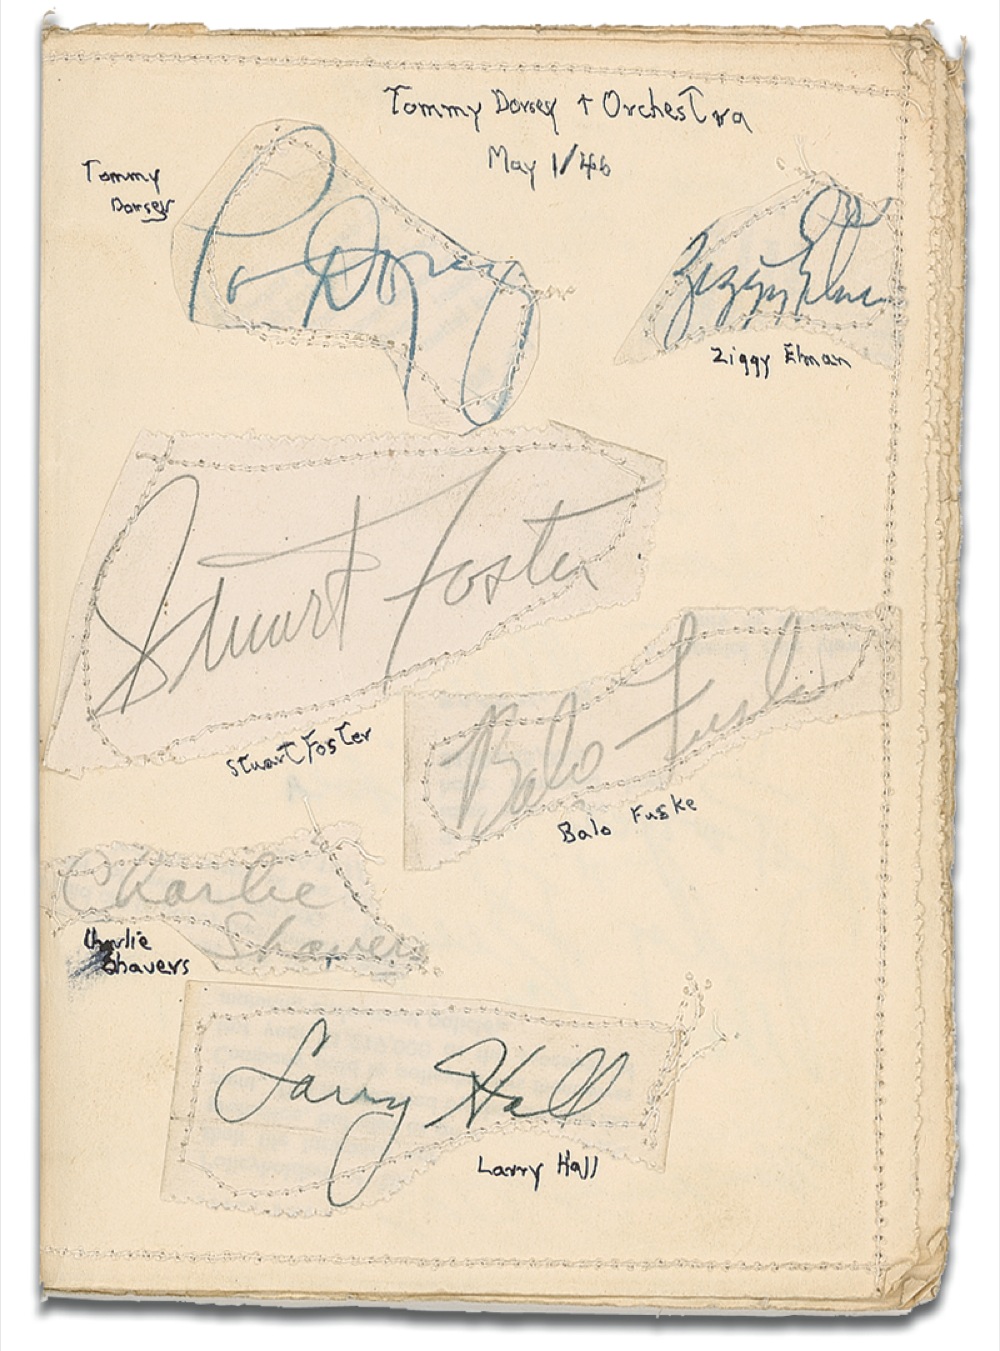 Tommy Dorsey + Orchestra
May 1/46
Tommy
Dorsey
Ziggy Elman
Ziggy Elman
Stuart Foster
Stuart Foster
Balo Fuske
Balo Fuske
Charlie
Shavers
Charlie
Shavers
Larry Hall
Larry Hall